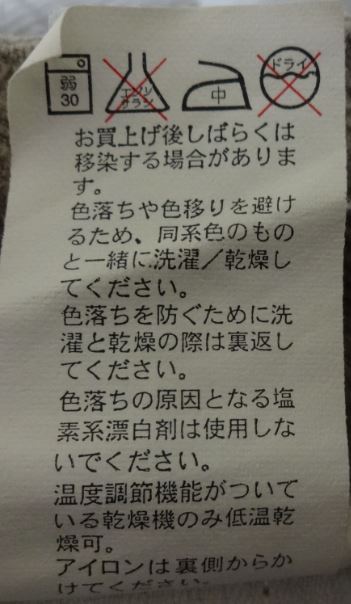 弱 30 エンソ サラシ 中 ドライ
お買上げ後しばらくは
移染する場合がありま
す。
色落ちや色移りを避け
るため、同系色のもの
と一緒に洗濯／乾燥し
てください。
色落ちを防ぐために洗
濯と乾燥の際は裏返し
てください。
色落ちの原因となる塩
素系漂白剤は使用しな
いでください。
温度調節機能がついて
いる乾燥機のみ低温乾
燥可。
アイロンは裏側からか
けてください。